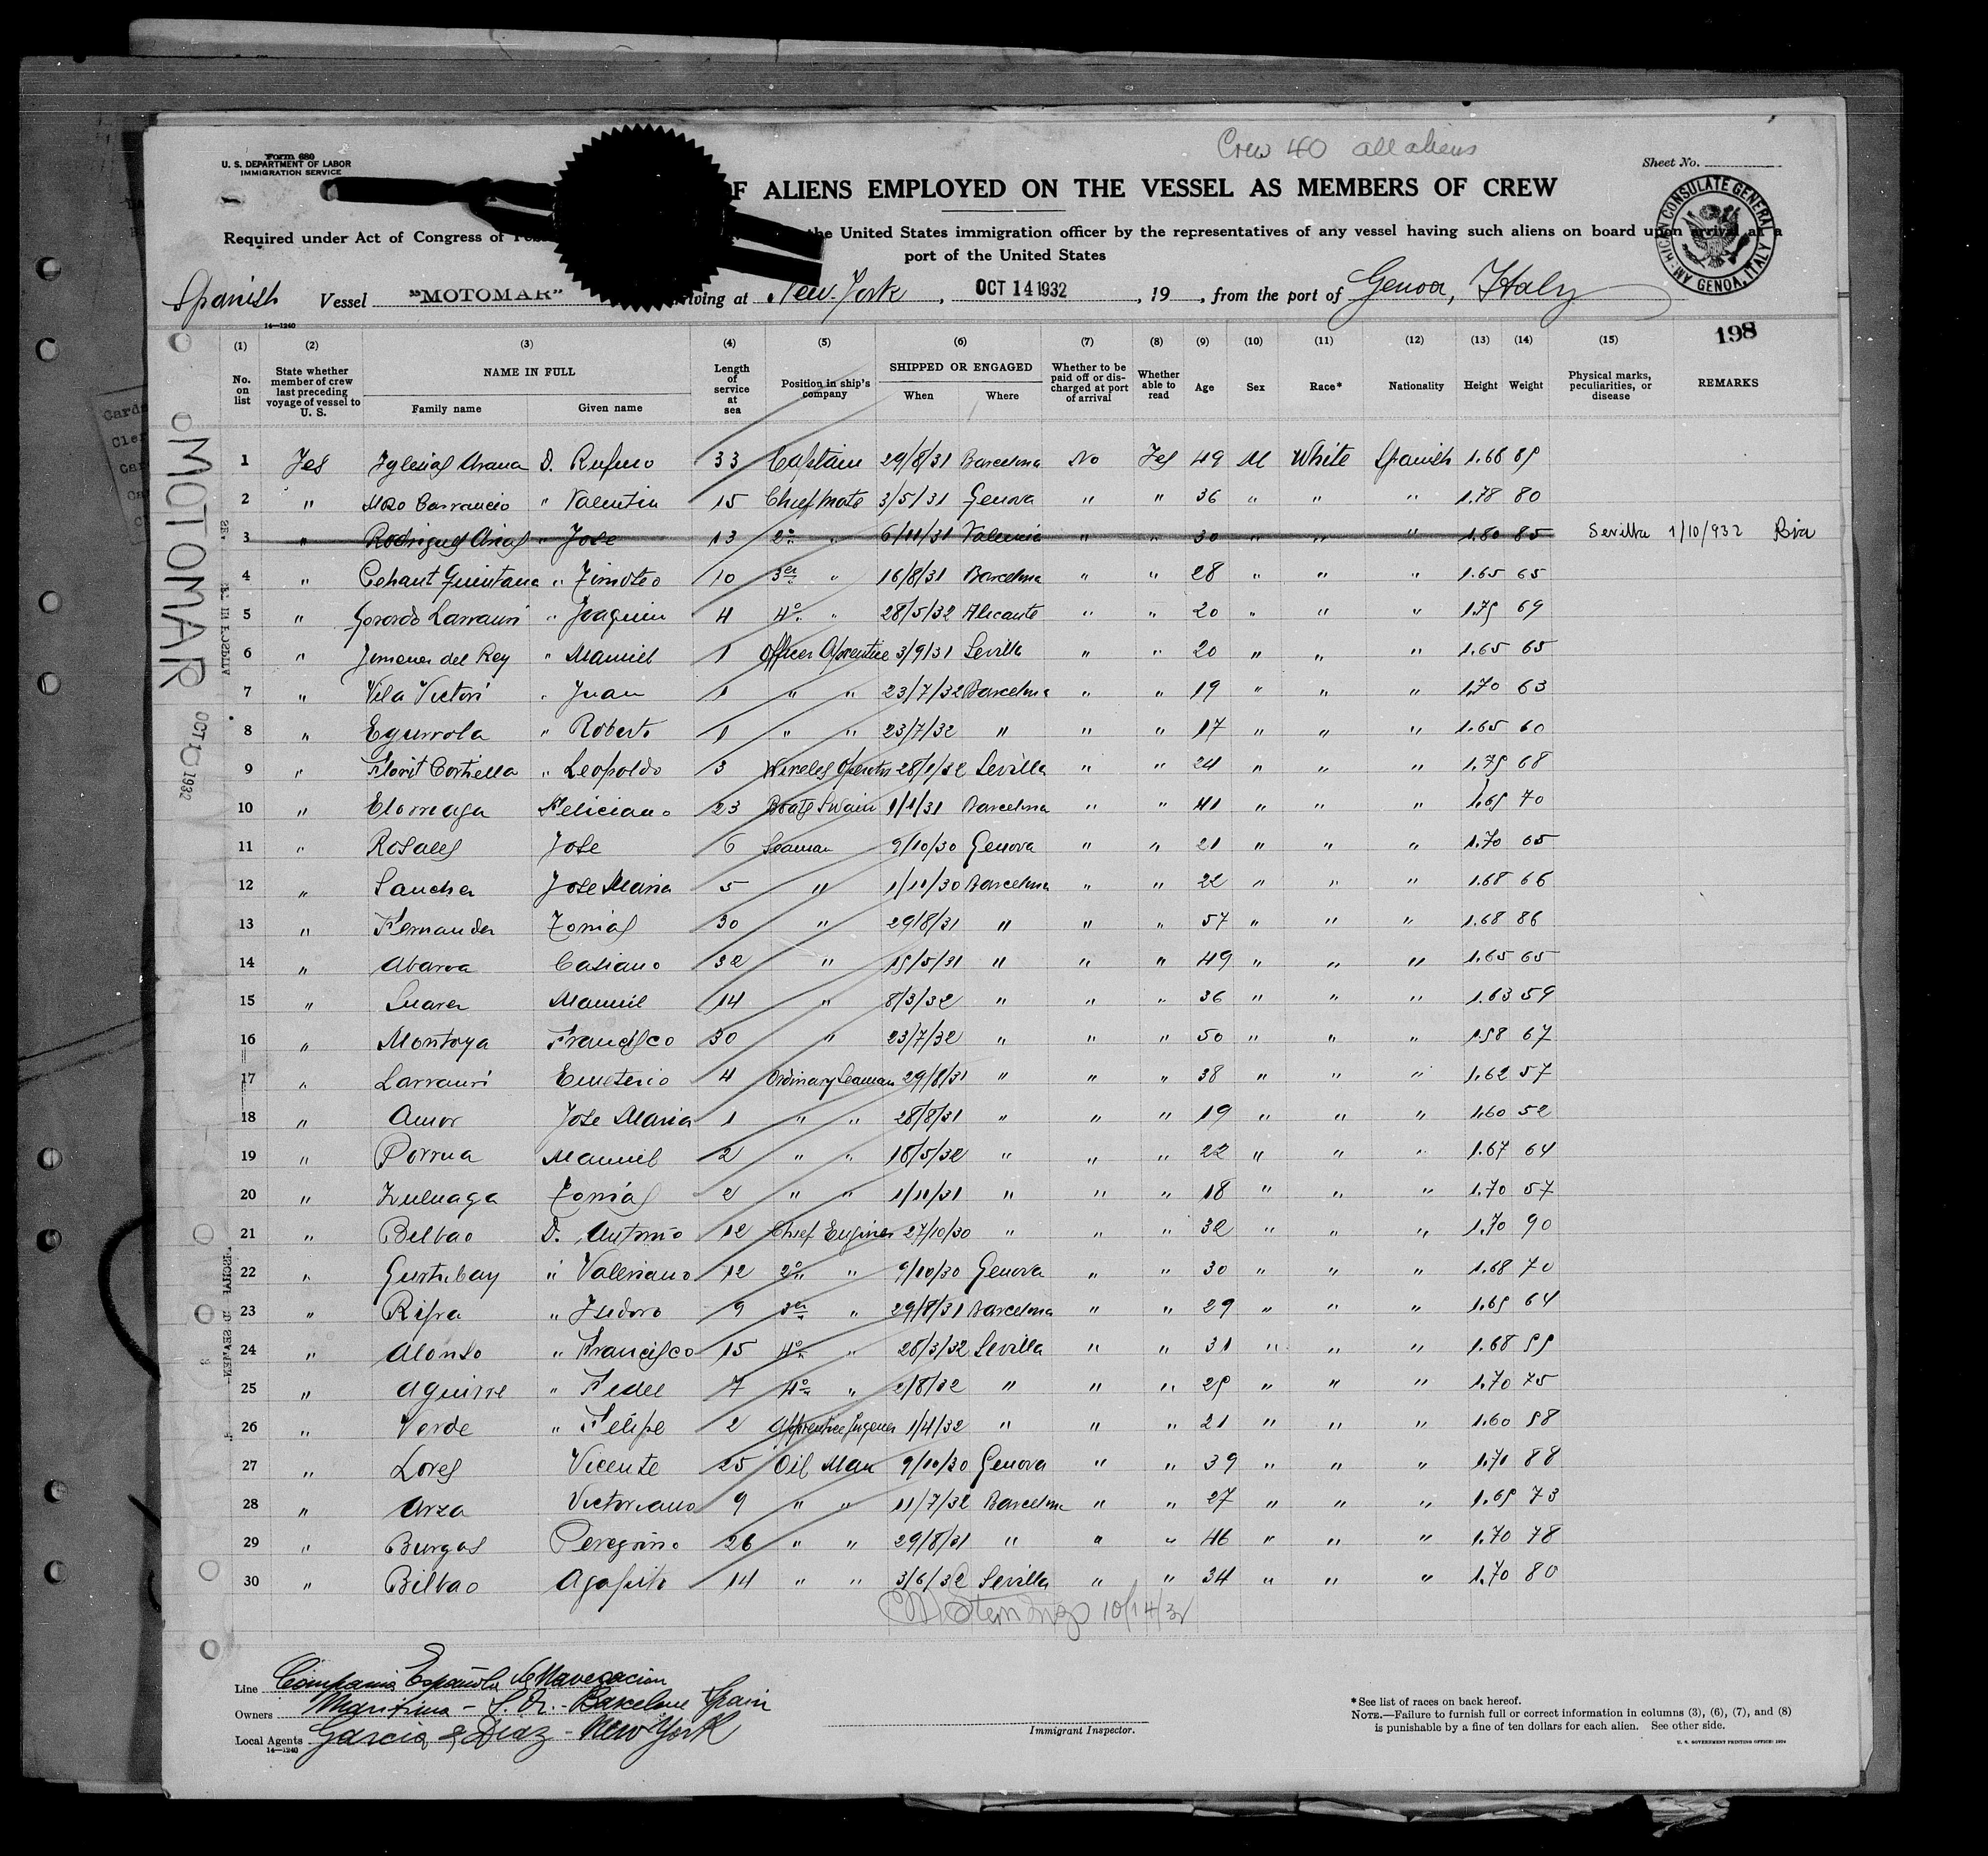 Crew 40 all aliens
Form 680
U. S. DEPARTMENT OF LABOR
IMMIGRATION SERVICE
Sheet No.
F ALIENS EMPLOYED ON THE VESSEL AS MEMBERS OF CREW
AMERICAN CONSULATE GENERAL GENOA, ITALY
Required under Act of Congress of the United States immigration officer by the representatives of any vessel having such aliens on board upon arrival at a
port of the United States
Spanish Vessel "MOTOMAR" iving at New-York, OCT 14 1932, 19 , from the port of Genoa, Italy
14—1240
198
(1) (2) (3) (4) (5) (6) (7) (8) (9) (10) (11) (12) (13) (14) (15)
No. on list State whether member of crew last preceding voyage of vessel to U. S. NAME IN FULL Family name Given name Length of service at sea Position in ship's company SHIPPED OR ENGAGED When Where Whether to be paid off or discharged at port of arrival Whether able to read Age Sex Race* Nationality Height Weight Physical marks, peculiarities, or disease REMARKS
1 Yes Yglesias Arana D. Rufino 33 Captain 29/8/31 Barcelona No Yes 49 M White Spanish 1.68 85
2 " Barrancio " Valentin 15 Chief mate 3/5/31 Genova " " 36 " " " 1.78 80
3 " Rodriguez Arias " Jose 13 2º " 6/11/31 Valencia " " 30 " " " 1.80 85 Sevilla 1/10/932
4 " Pehaut Quintana " Timoteo 10 3er " 16/8/31 Barcelona " " 28 " " " 1.65 65
5 " Gorordo Larrauri " Joaquin 4 4º " 28/5/32 Alicante " " 20 " " " 1.75 69
6 " Jimenez del Rey " Manuel 1 Officer Aprentice 3/9/31 Sevilla " " 20 " " " 1.65 65
7 " Vila Victori " Juan 1 " " 23/7/32 Barcelona " " 19 " " " 1.70 63
8 " Egurrola " Roberto 1 " " 23/7/32 " " " 17 " " " 1.65 60
9 " Florit Cortiella " Leopoldo 3 Wireles Operator 28/1/32 Sevilla " " 24 " " " 1.75 68
10 " Elorriaga Feliciano 23 Boats Swain 1/1/31 Barcelona " " 41 " " " 1.65 70
11 " Rosales Jose 6 Seaman 9/10/30 Genova " " 21 " " " 1.70 65
12 " Sanchez Jose Maria 5 " 1/10/30 Barcelona " " 22 " " " 1.68 66
13 " Fernandez Tomas 30 " 29/8/31 " " " 57 " " " 1.68 86
14 " Abaroa Casiano 32 " 15/5/31 " " " 49 " " " 1.65 65
15 " Suarez Manuel 14 " 8/3/32 " " " 36 " " " 1.63 59
16 " Montoya Francisco 30 " 23/7/32 " " " 50 " " " 1.58 67
17 " Larrauri Emeterio 4 Ordinary Seaman 29/8/31 " " " 38 " " " 1.62 57
18 " Amor Jose Maria 1 " " 28/8/31 " " " 19 " " " 1.60 52
19 " Porrua Manuel 2 " " 18/5/32 " " " 22 " " " 1.67 64
20 " Zuluaga Tomás 2 " " 1/11/31 " " " 18 " " " 1.70 57
21 " Bilbao D. Antonio 12 Chief Engineer 27/10/30 " " " 32 " " " 1.70 90
22 " Gurtubay " Valeriano 12 2º " 9/10/30 Genova " " 30 " " " 1.68 70
23 " Ripa " Isidoro 9 3er " 29/8/31 Barcelona " " 29 " " " 1.65 64
24 " Alonso " Francisco 15 4º " 28/3/32 Sevilla " " 31 " " " 1.68 55
25 " Aguirre " Fidel 7 4º " 2/8/32 " " " 25 " " " 1.70 75
26 " Verde " Felipe 2 Apprentice Engeneer 1/4/32 " " " 21 " " " 1.60 58
27 " Lores Vicente 25 Oil Man 9/10/30 Genova " " 39 " " " 1.71 88
28 " Arza Victoriano 9 " " 11/7/32 Barcelona " " 27 " " " 1.65 73
29 " Burgos Peregrino 26 " " 29/8/31 " " " 46 " " " 1.70 78
30 " Bilbao Agapito 14 " " 3/6/32 Sevilla " " 34 " " " 1.70 80
10/14/32
MOTOMAR OCT 1932
Line Compania Española de Navegacion
Owners Maritima - S. A. - Barcelona Spain
Local Agents Garcia & Diaz - New York
14—1240
Immigrant Inspector.
*See list of races on back hereof.
NOTE.—Failure to furnish full or correct information in columns (3), (6), (7), and (8)
is punishable by a fine of ten dollars for each alien. See other side.
U. S. GOVERNMENT PRINTING OFFICE: 1924